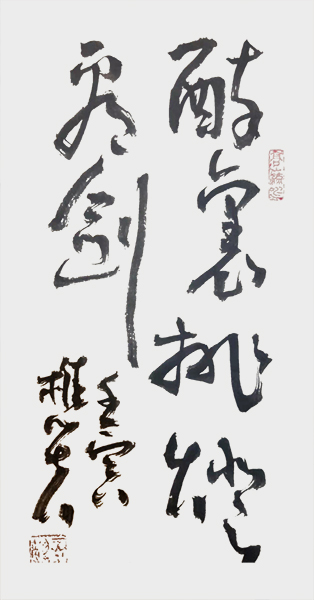 醉裏挑燈
看劍
壬寅